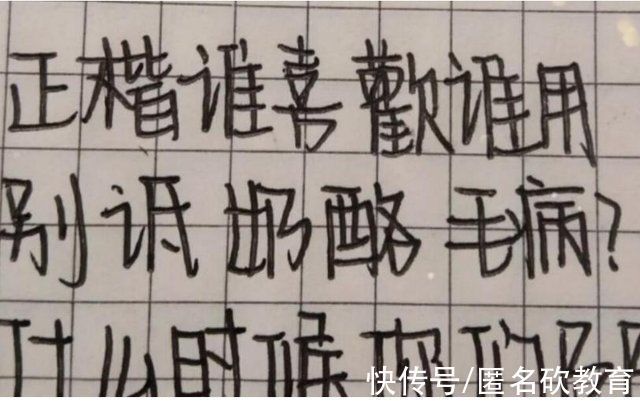 正楷谁喜歡谁用
别诋奶酪毛病?
什么时候你们
快传号/匿名砍教育